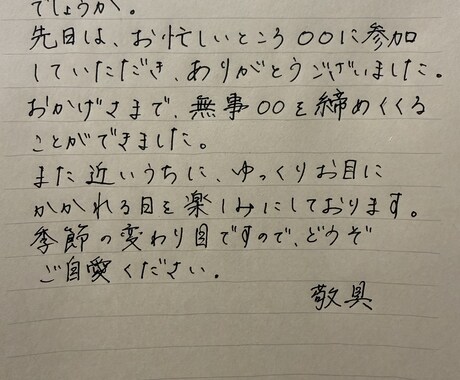 でしょうか。
先日は、お忙しいところ〇〇に参加
していただき、ありがとうございました。
おかげさまで、無事〇〇を締めくくる
ことができました。
また近いうちに、ゆっくりお目に
かかれる日を楽しみにしております。
季節の変わり目ですので、どうぞ
ご自愛ください。
敬具